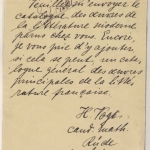 Veuillez m'envoyer le
catalogue des œuvres de
la littérature moderne
parus chez vous. Encore,
je vous prie d'y ajouter,
si cela se peut, un cata-
logue général des œuvres
principales de la litté-
rature française.
H.
cand. math.